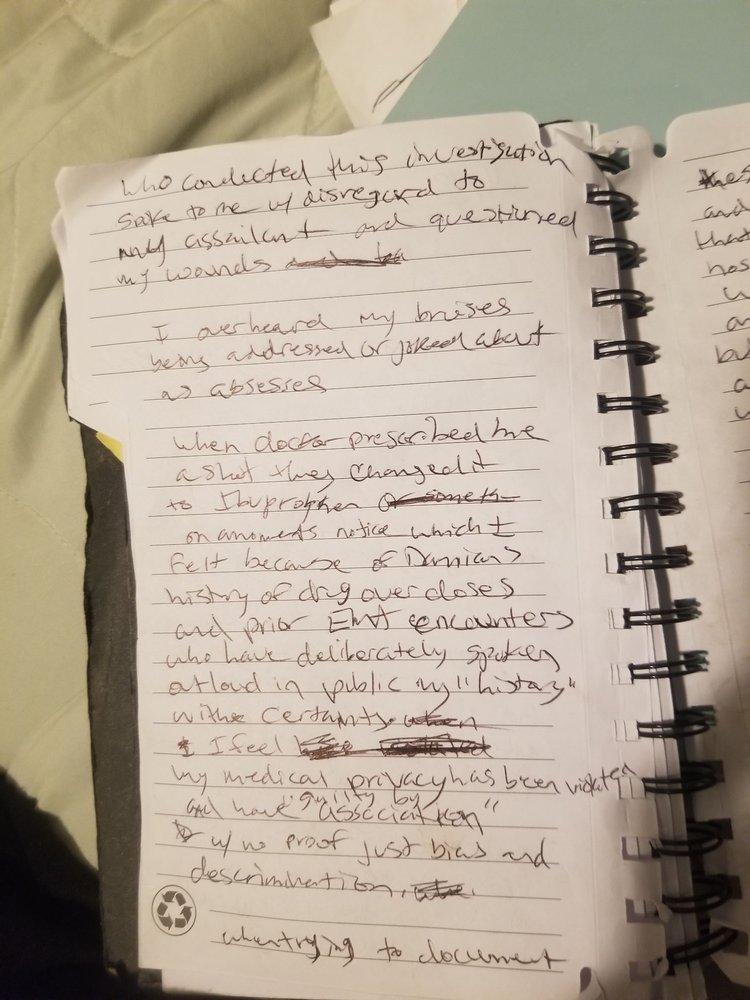 who conducted this investigation
spke to me w/ disregard to
my assailant and questionned
my wounds
I overheard my bruises
being addressed or joked about
as absesses
when doctor prescribed me
a shot they changed it
to Ibuprophen or someth
on amoments notice which I
felt because of Damian's
history of drug overdoses
and prior EMT encounters
who have deliberately spoken
outloud in public my "history"
with certainty when
I feel
my medical privacy has been violated
and have "guilty by
association"
w/ no proof just bias and
descrimination.
when trying to document
and
that
hos
an
bu
a